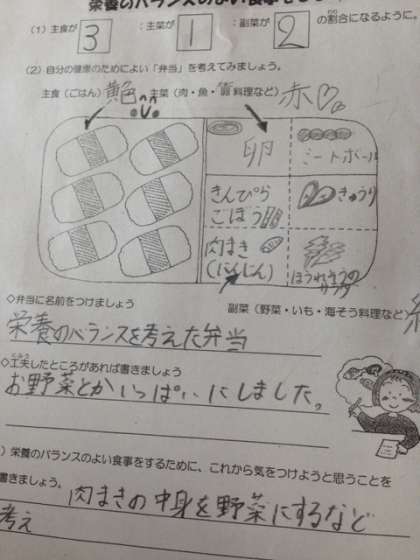 栄養のバランスのよい食事を
(1) 主食が 3 : 主菜が 1 : 副菜が 2 の割合になるように。
(2) 自分の健康のためによい「弁当」を考えてみましょう。
主食(ごはん) 黄色 主菜(肉・魚・卵料理など) 赤♡
卵
ミートボール
きんぴら
ごぼう
きゅうり
肉まき
(にんじん)
ほうれんそうの
サラダ
◇弁当に名前をつけましょう
副菜(野菜・いも・海そう料理など)
栄養のバランスを考えた弁当
◇工夫したところがあれば書きましょう
お野菜とかいっぱいにしました。
) 栄養のバランスのよい食事をするために、これから気をつけようと思うことを
書きましょう。
肉まきの中身を野菜にするなど
考え